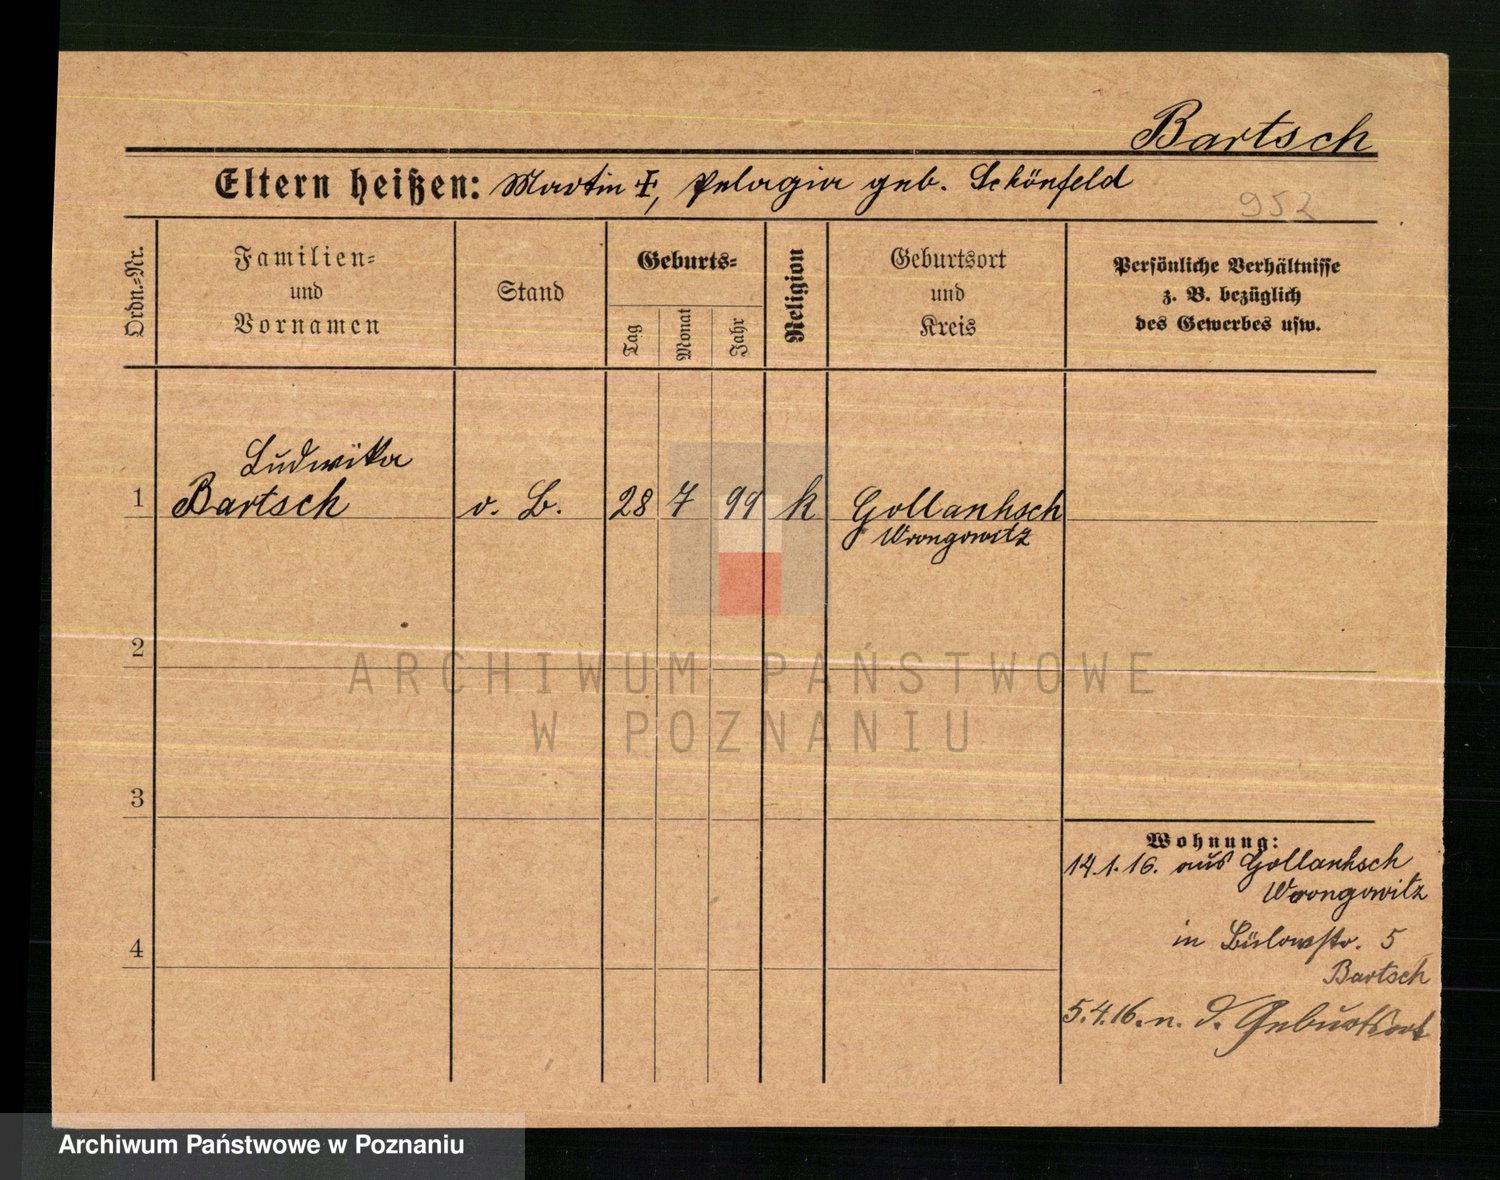 Bartsch
Eltern heißen: Martin †, Pelagia geb. Schönfeld
952
Ordn.-Nr.
Familien-
und
Vornamen
Stand
Geburts-
Tag
Monat
Jahr
Religion
Geburtsort
und
Kreis
Persönliche Verhältnisse
z. B. bezüglich
des Gewerbes usw.
Ludwika
1 Bartsch o. B. 28 7 99 k Gollantsch
Wrongowitz
2
ARCHIWUM PAŃSTWOWE
W POZNANIU
3
Wohnung:
14.1.16. aus Gollantsch
Wrongowitz
in Bülowstr. 5
4
Bartsch
5.4.16. n. d. Geburtsort
Archiwum Państwowe w Poznaniu